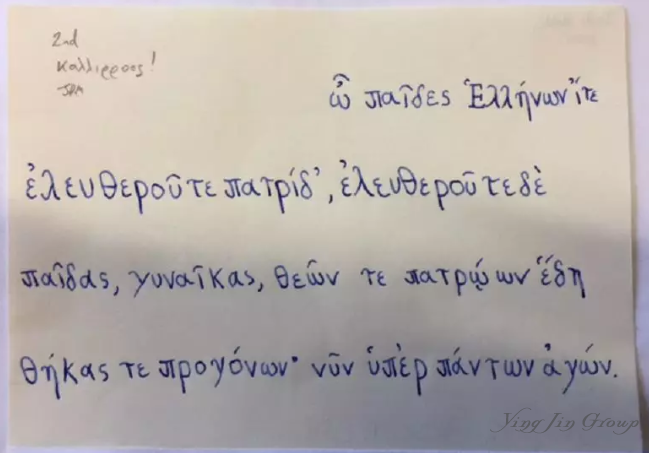 2nd
καλλιρροος!
ὦ παῖδες Ἑλλήνων ἴτε
ἐλευθεροῦτε πατρίδ', ἐλευθεροῦτε δὲ
παῖδας, γυναῖκας, θεῶν τε πατρῴων ἕδη
θήκας τε προγόνων· νῦν ὑπὲρ πάντων ἀγών.
Ying Jin Group